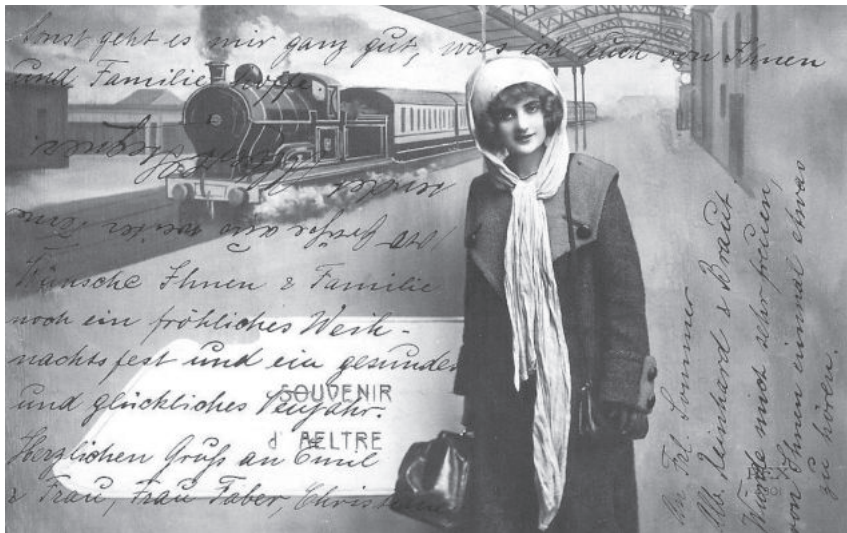 Sonst geht es mir ganz gut, was ich auch von Ihnen
und Familie hoffe.
Wünsche Ihnen & Familie
noch ein fröhliches Weih-
nachtsfest und ein gesundes
und glückliches Neujahr.
Herzlichen Gruss an Emil
& Frau, Frau Faber, Christine
SOUVENIR
d'AELTRE
Frl. Sommer
Alb. Reinhard & Braut
Würde mich sehr freuen,
von Ihnen einmal etwas
zu hören.